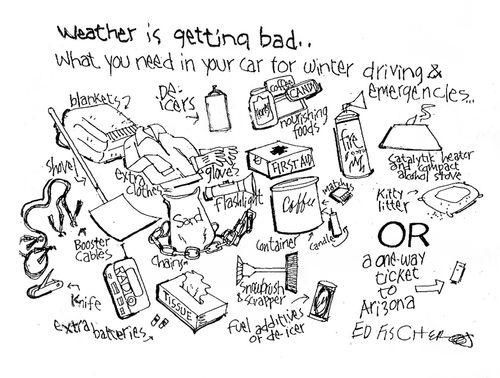 weather is getting bad..
what you need in your car for winter driving &
emergencies...
blankets?
DE-
icers
coffee
CANDY
Honey
nourishing
foods
Fire
shovel
extra
clothes
gloves?
FIRST AID
Satalytik heater
and compact
alcohol stove
Flashlight
Sand
Coffee
Matches
Kitty
litter
Booster
Cables
chains
container
candle
OR
a one-way
ticket
to
Arizona
Knife
extra batteries
TISSUE
Snowbrush
& scrapper
fuel additives
or de-icer
ED FISCHER